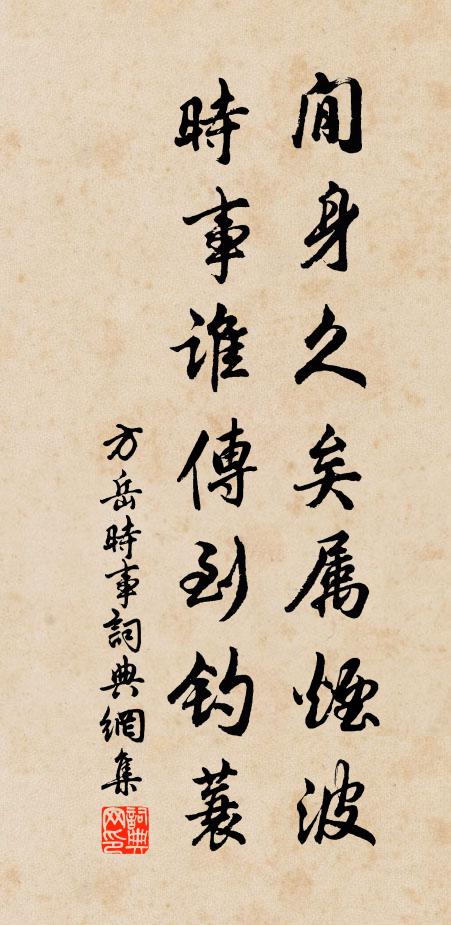 閒身久矣属煙波
時事誰傳到釣蓑
方岳時事詞典網集
詞典网印